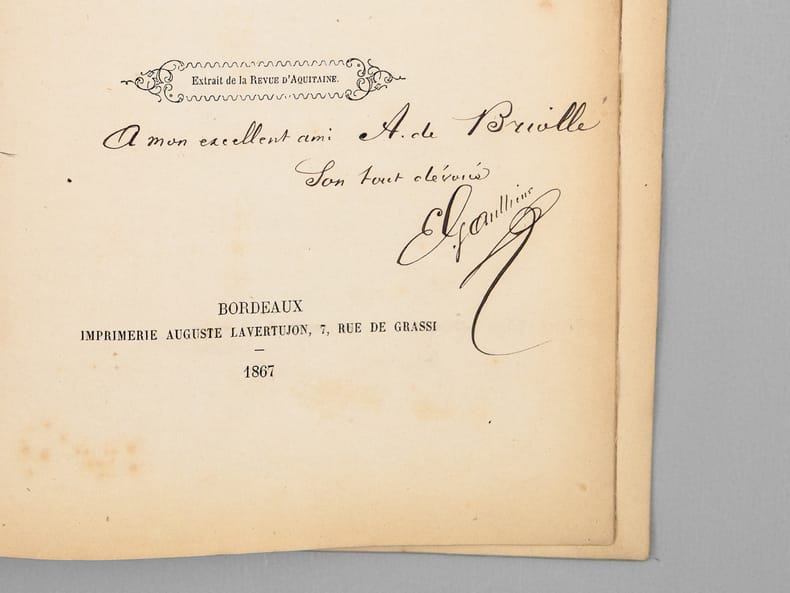 Extrait de la REVUE D'AQUITAINE.
A mon excellent ami A. de Briolle
Son tout dévoué
E. Gaullieur
BORDEAUX
IMPRIMERIE AUGUSTE LAVERTUJON, 7, RUE DE GRASSI
1867